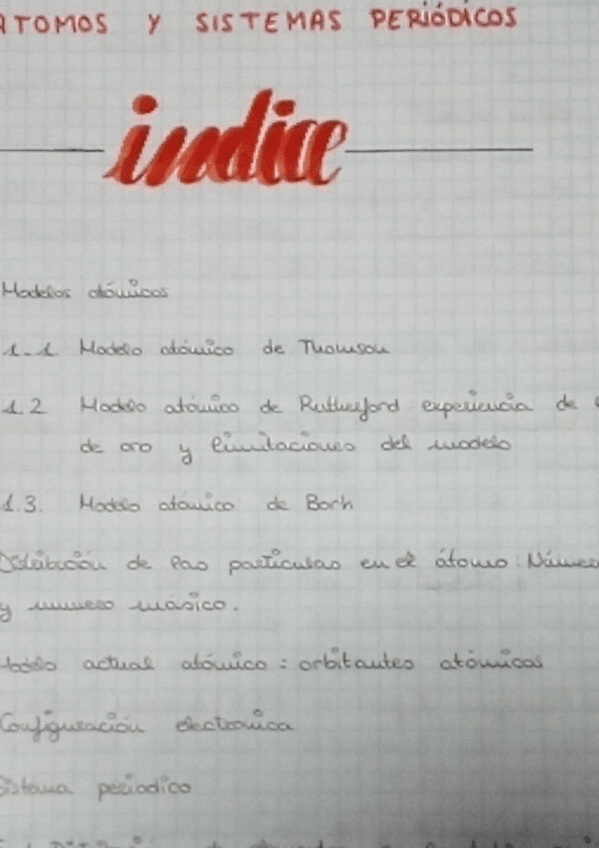 ATOMOS Y SISTEMAS PERIÓDICOS
indice
Modelos atómicos
1.1 Modelo atómico de Thomson
1.2 Modelo atómico de Rutherford experiencia de
de oro y limitaciones del modelo
1.3. Modelo atómico de Borh
Distribución de las particulas en el átomo: Númer
y numero másico.
Modelo actual atómico: orbitantes atómicas
Configuración electronica
Sistema periodico